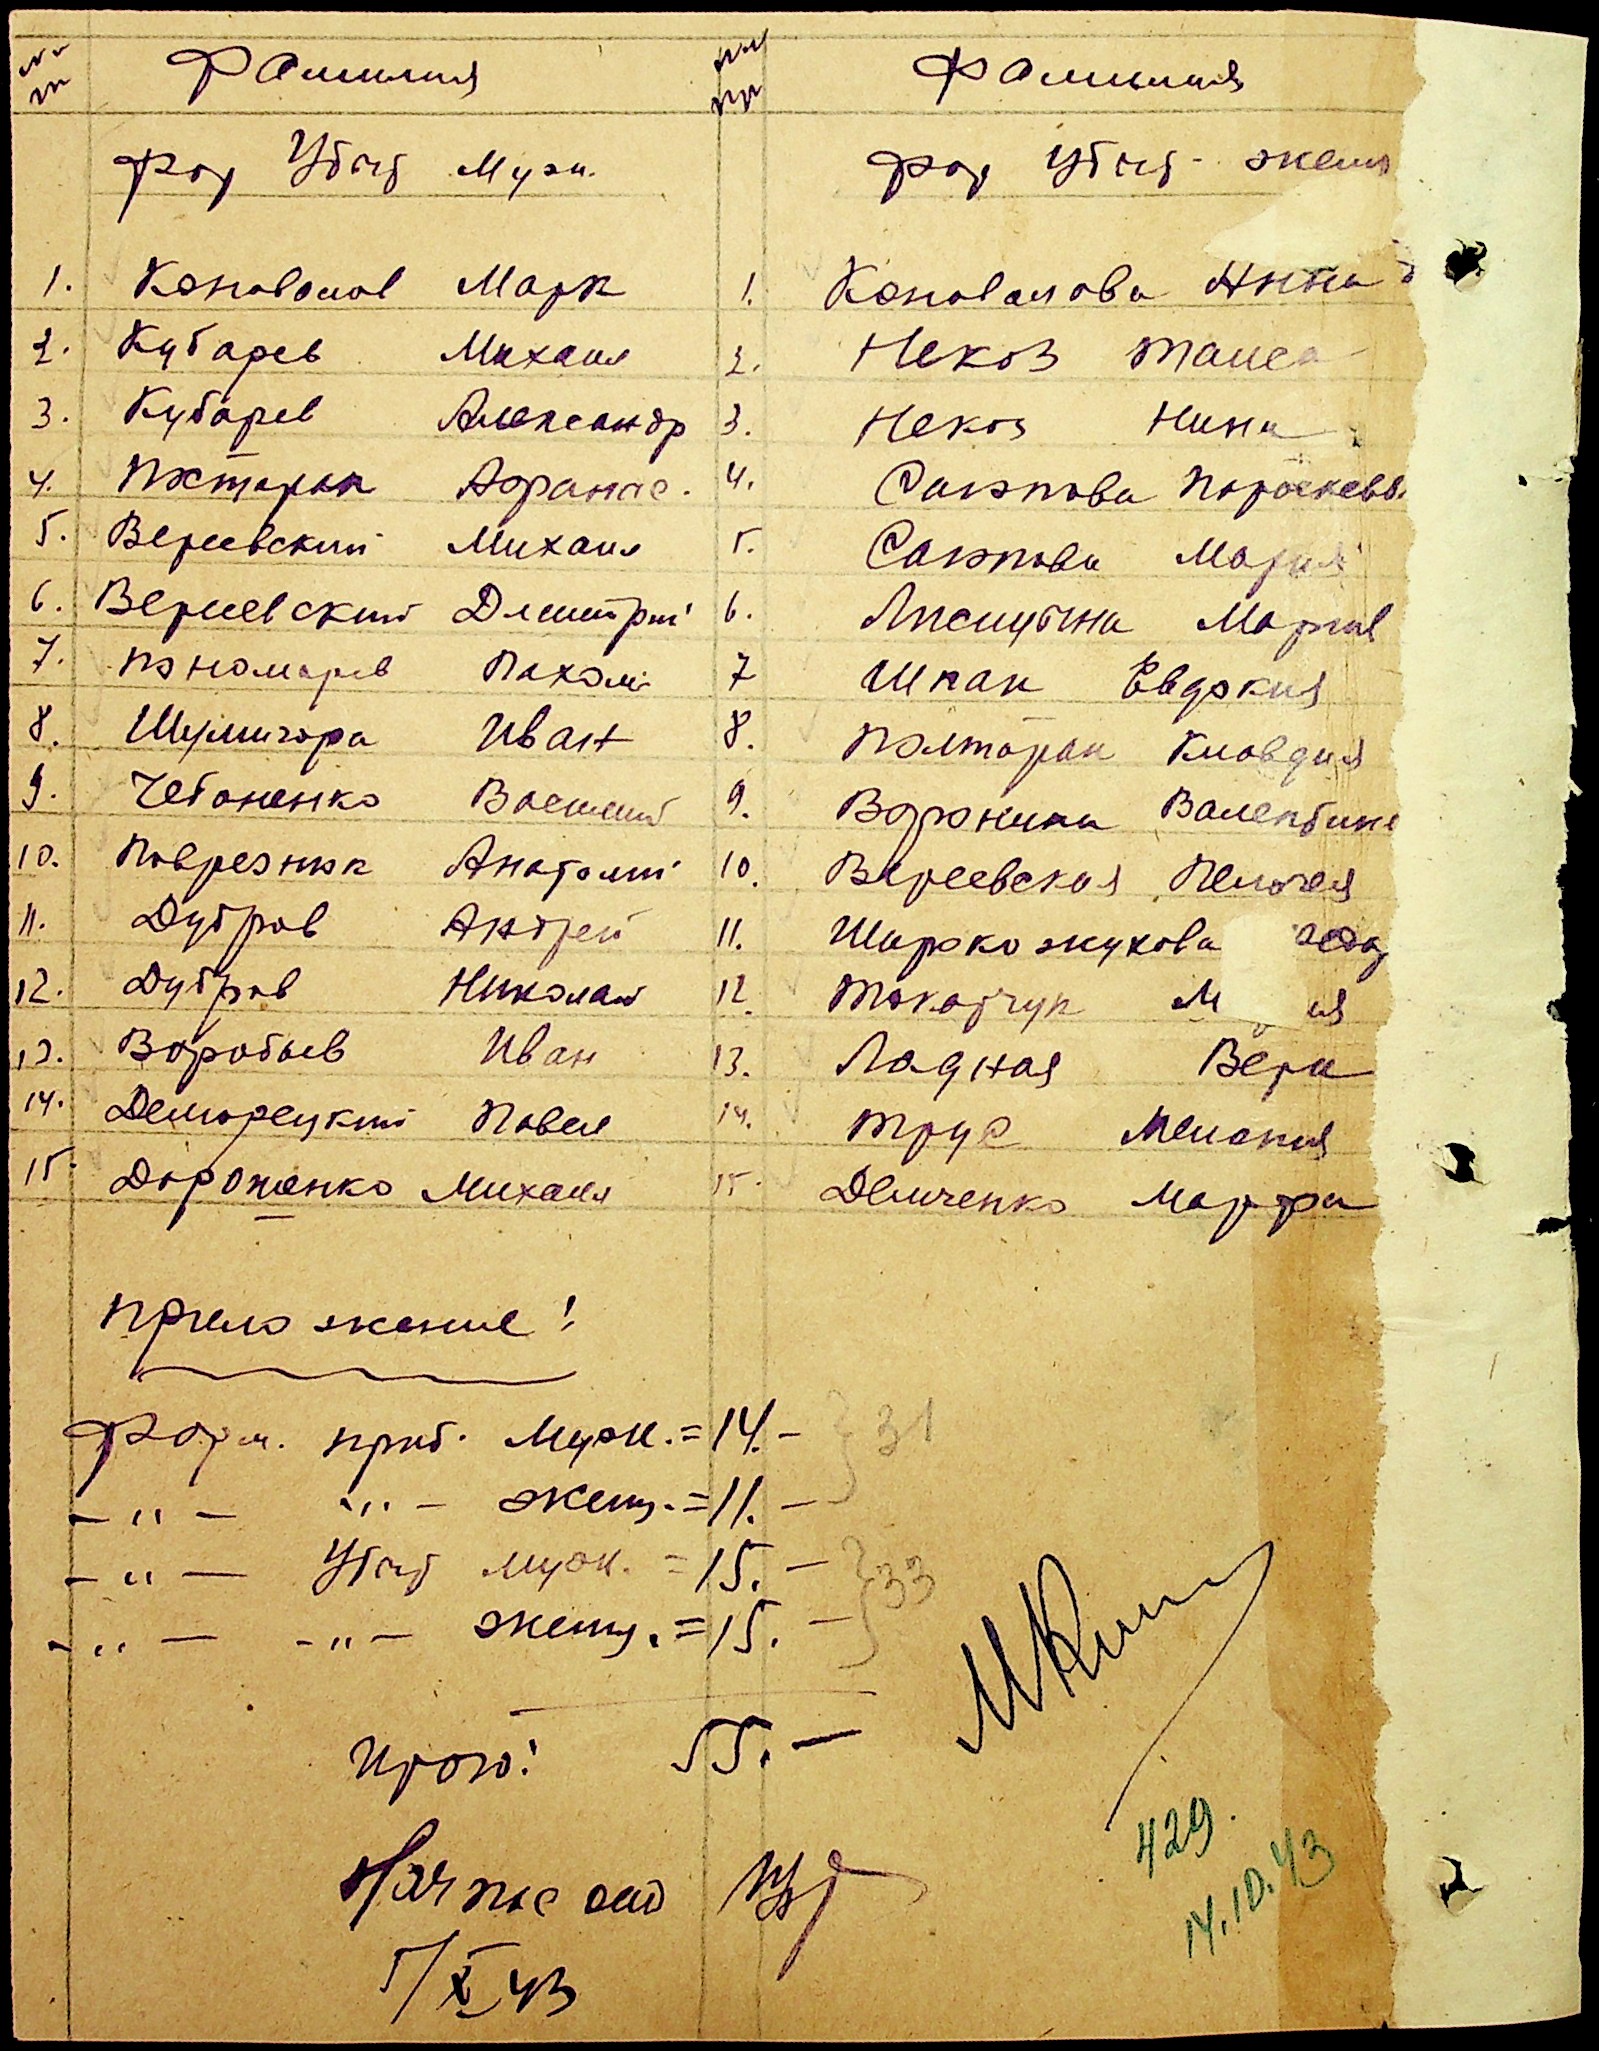 №№ Фамилия №№ Фамилия
пп пп
фор Убыт муж. фор Убыт - женщ
1. Коновалов Марк 1. Коновалова Анна
2. Кубарев Михаил 2. Некоз Таиса
3. Кубарев Александр 3. Некоз Нина
4. Афанас. 4. Саюпова Пораскевья
5. Вереевский Михаил 5. Саюпова Мария
6. Вереевский Дмитрий 6. Лисицына Мария
7. Пономарев Пахом 7 Шпак Евдокия
8. Шумигора Иван 8. Полторак Клавдия
9. Чебаненко Василий 9. Воронина Валентина
10. Поврезнюк Анатолий 10. Вереевская Пелагея
11. Дубров Андрей 11. Широкожухова
12. Дубров Николай 12. Токарчук М ия
13. Воробьев Иван 13. Ладная Вера
14. Деморецкий Павел 14. Трус Мелания
15 Дороженко Михаил 15. Демченко Марфа
Приложение!
Форм. приб. муж. = 14. - } 31
- " - - " - женщ. = 11. -
- " - Убыт муж. = 15. - } 33
- " - - " - женщ. = 15. -
Итого: 55. -
Нач пас
429.
14.10.43
5/X 43